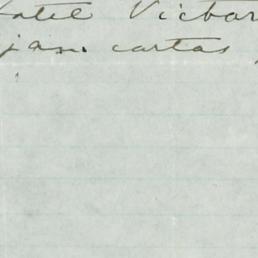 Hotel Victor
jan. cartas